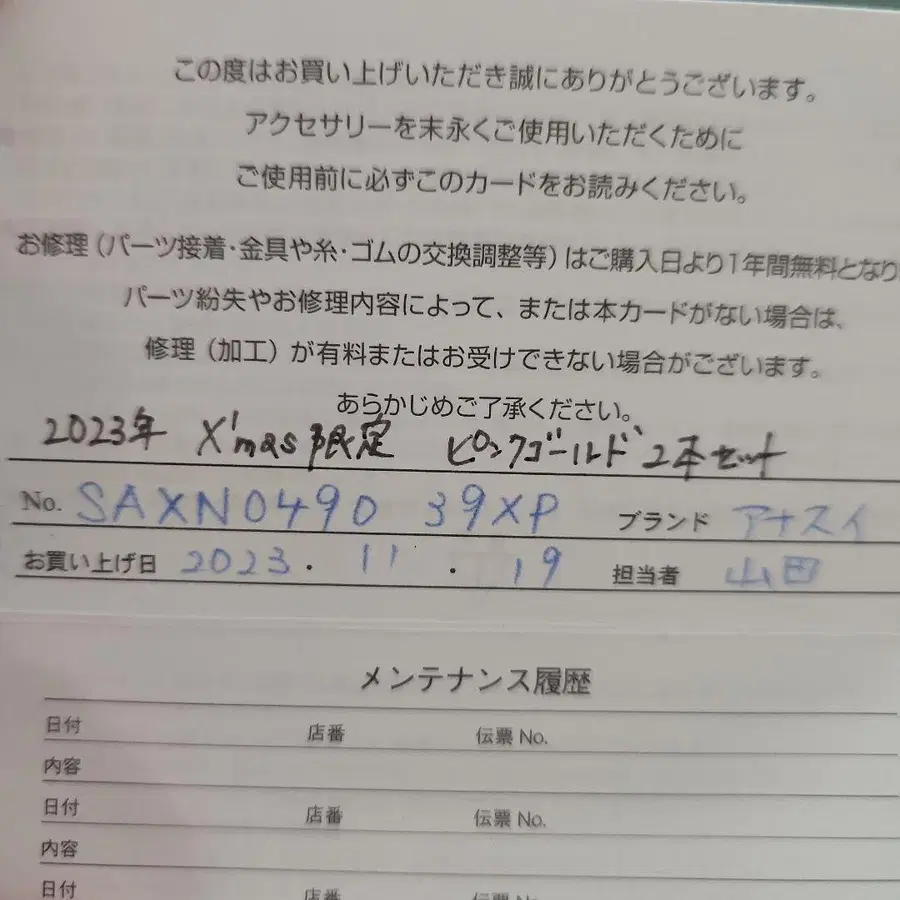 この度はお買い上げいただき誠にありがとうございます。
アクセサリーを末永くご使用いただくために
ご使用前に必ずこのカードをお読みください。
お修理（パーツ接着・金具や糸・ゴムの交換調整等）はご購入日より1年間無料となり
パーツ紛失やお修理内容によって、または本カードがない場合は、
修理（加工）が有料またはお受けできない場合がございます。
あらかじめご了承ください。
2023年 X'mas 限定 ピンクゴールド 2本セット
No. SAXN0490 39XP ブランド アナスイ
お買い上げ日 2023. 11 . 19 担当者 山田
メンテナンス履歴
日付 店番 伝票 No.
内容
日付 店番 伝票 No.
内容
日付 店番 伝票 No.